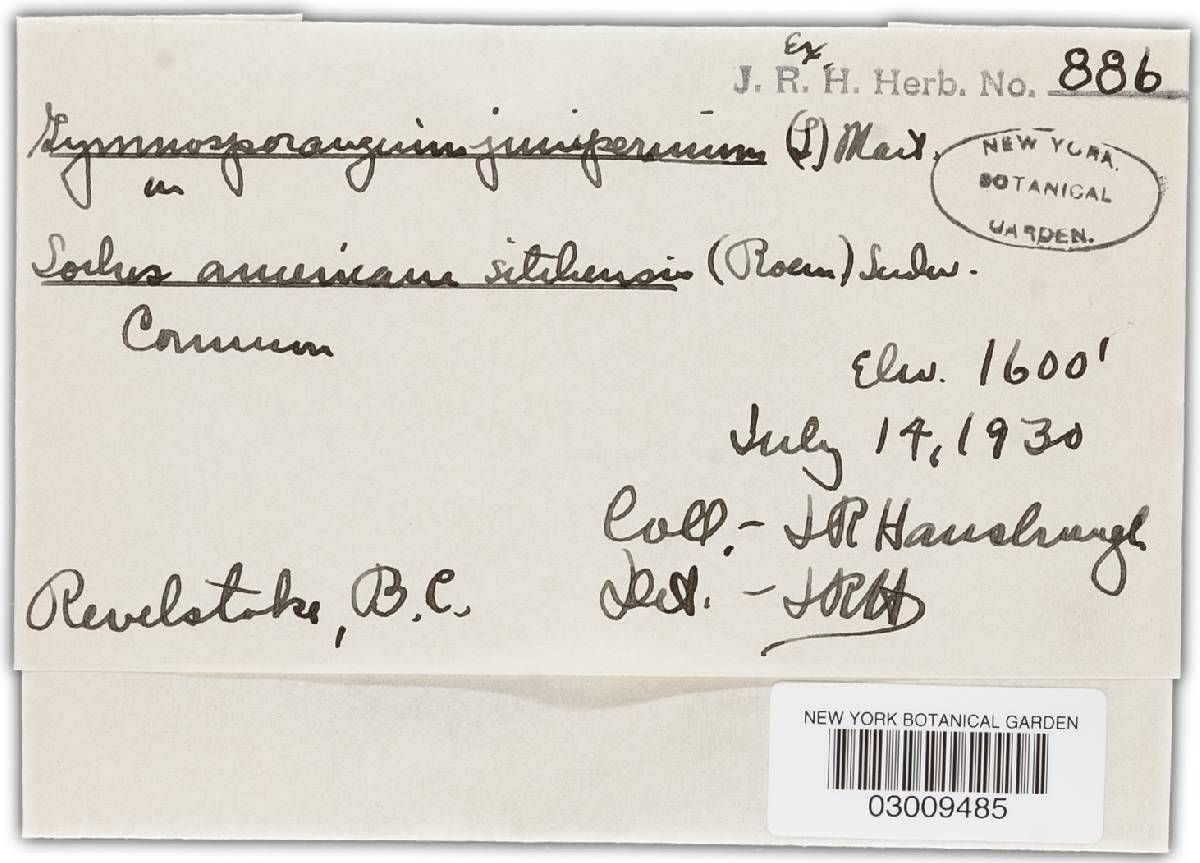 Ex.
J. R. H. Herb. No. 886
Gymnosporangium juniperinum (L) Mart.
on
NEW YORK
BOTANICAL
GARDEN.
Sorbus americana sitchensis (Roem) Sudw.
Common
Elev. 1600'
July 14, 1930
Coll. - JR Hansbrough
Revelstoke, B.C. Det. - JRH
NEW YORK BOTANICAL GARDEN
03009485